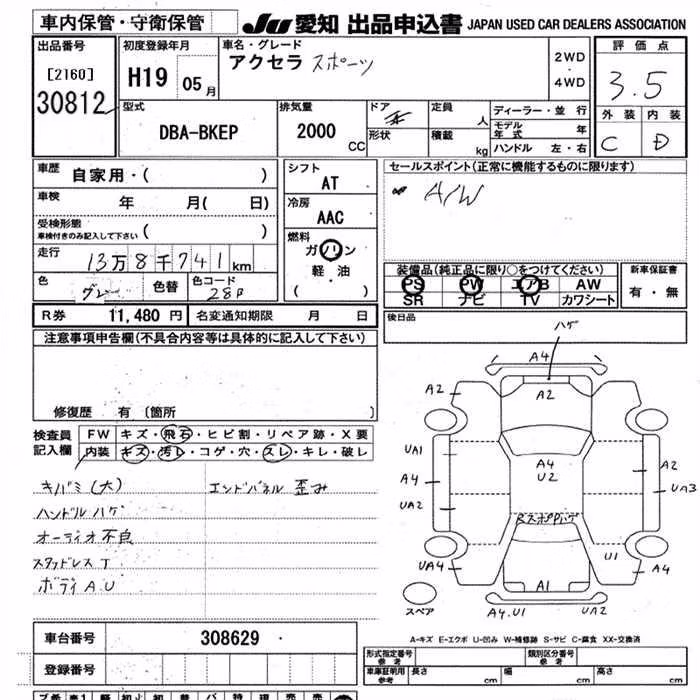 車内保管・守衛保管 JU 愛知 出品申込書 JAPAN USED CAR DEALERS ASSOCIATION
出品番号 初度登録年月 車名・グレード 2WD・4WD 評価点
[2160] H19 05月 アクセラ スポーツ 3.5
30812
型式 排気量 ドア 定員 人 ディーラー・並行 外装 内装
DBA-BKEP 2000 CC 形状 積載 kg モデル年式 年 C D
ハンドル 左・右
車歴 自家用・( ) シフト AT セールスポイント(正常に機能するものに限ります)
車検 年 月( 日) 冷房 AAC A/W
受検形態 車検付きのみ記入して下さい ( )
燃料 ガソリン
走行 13万8千741km 軽・油 ( )
色 グレー 色替 色コード 28P
装備品(純正品に限り○をつけてください) 新車保証書
PS PW エアB AW 有・無
SR ナビ TV カワシート
R券 11,480 円 名変通知期限 月 日 後日品
注意事項申告欄(不具合内容等は具体的に記入して下さい)
修復歴 有 〔箇所 〕
検査員記入欄 FW キズ・飛石・ヒビ割・リペア跡・X要
内装 キズ・汚レ・コゲ・穴・スレ・キレ・破レ
キバミ(大) エンドパネル 歪み
ハンドルハゲ
オーディオ不良
スタッドレスT
ボディA.U
ハゲ
A4
A2 A2
UA1
A4 A4 A2
U2 UA3
UA2
U1
UA4 A4
A1
スペア A4.U1 UA2
A-キズ E-エクボ U-凹み W-補修跡 S-サビ C-腐食 XX-交換済
車台番号 308629
登録番号
形式指定番号 参考 類別区分番号 参考
車庫証明用 参考 長さ cm 幅 cm 高さ cm